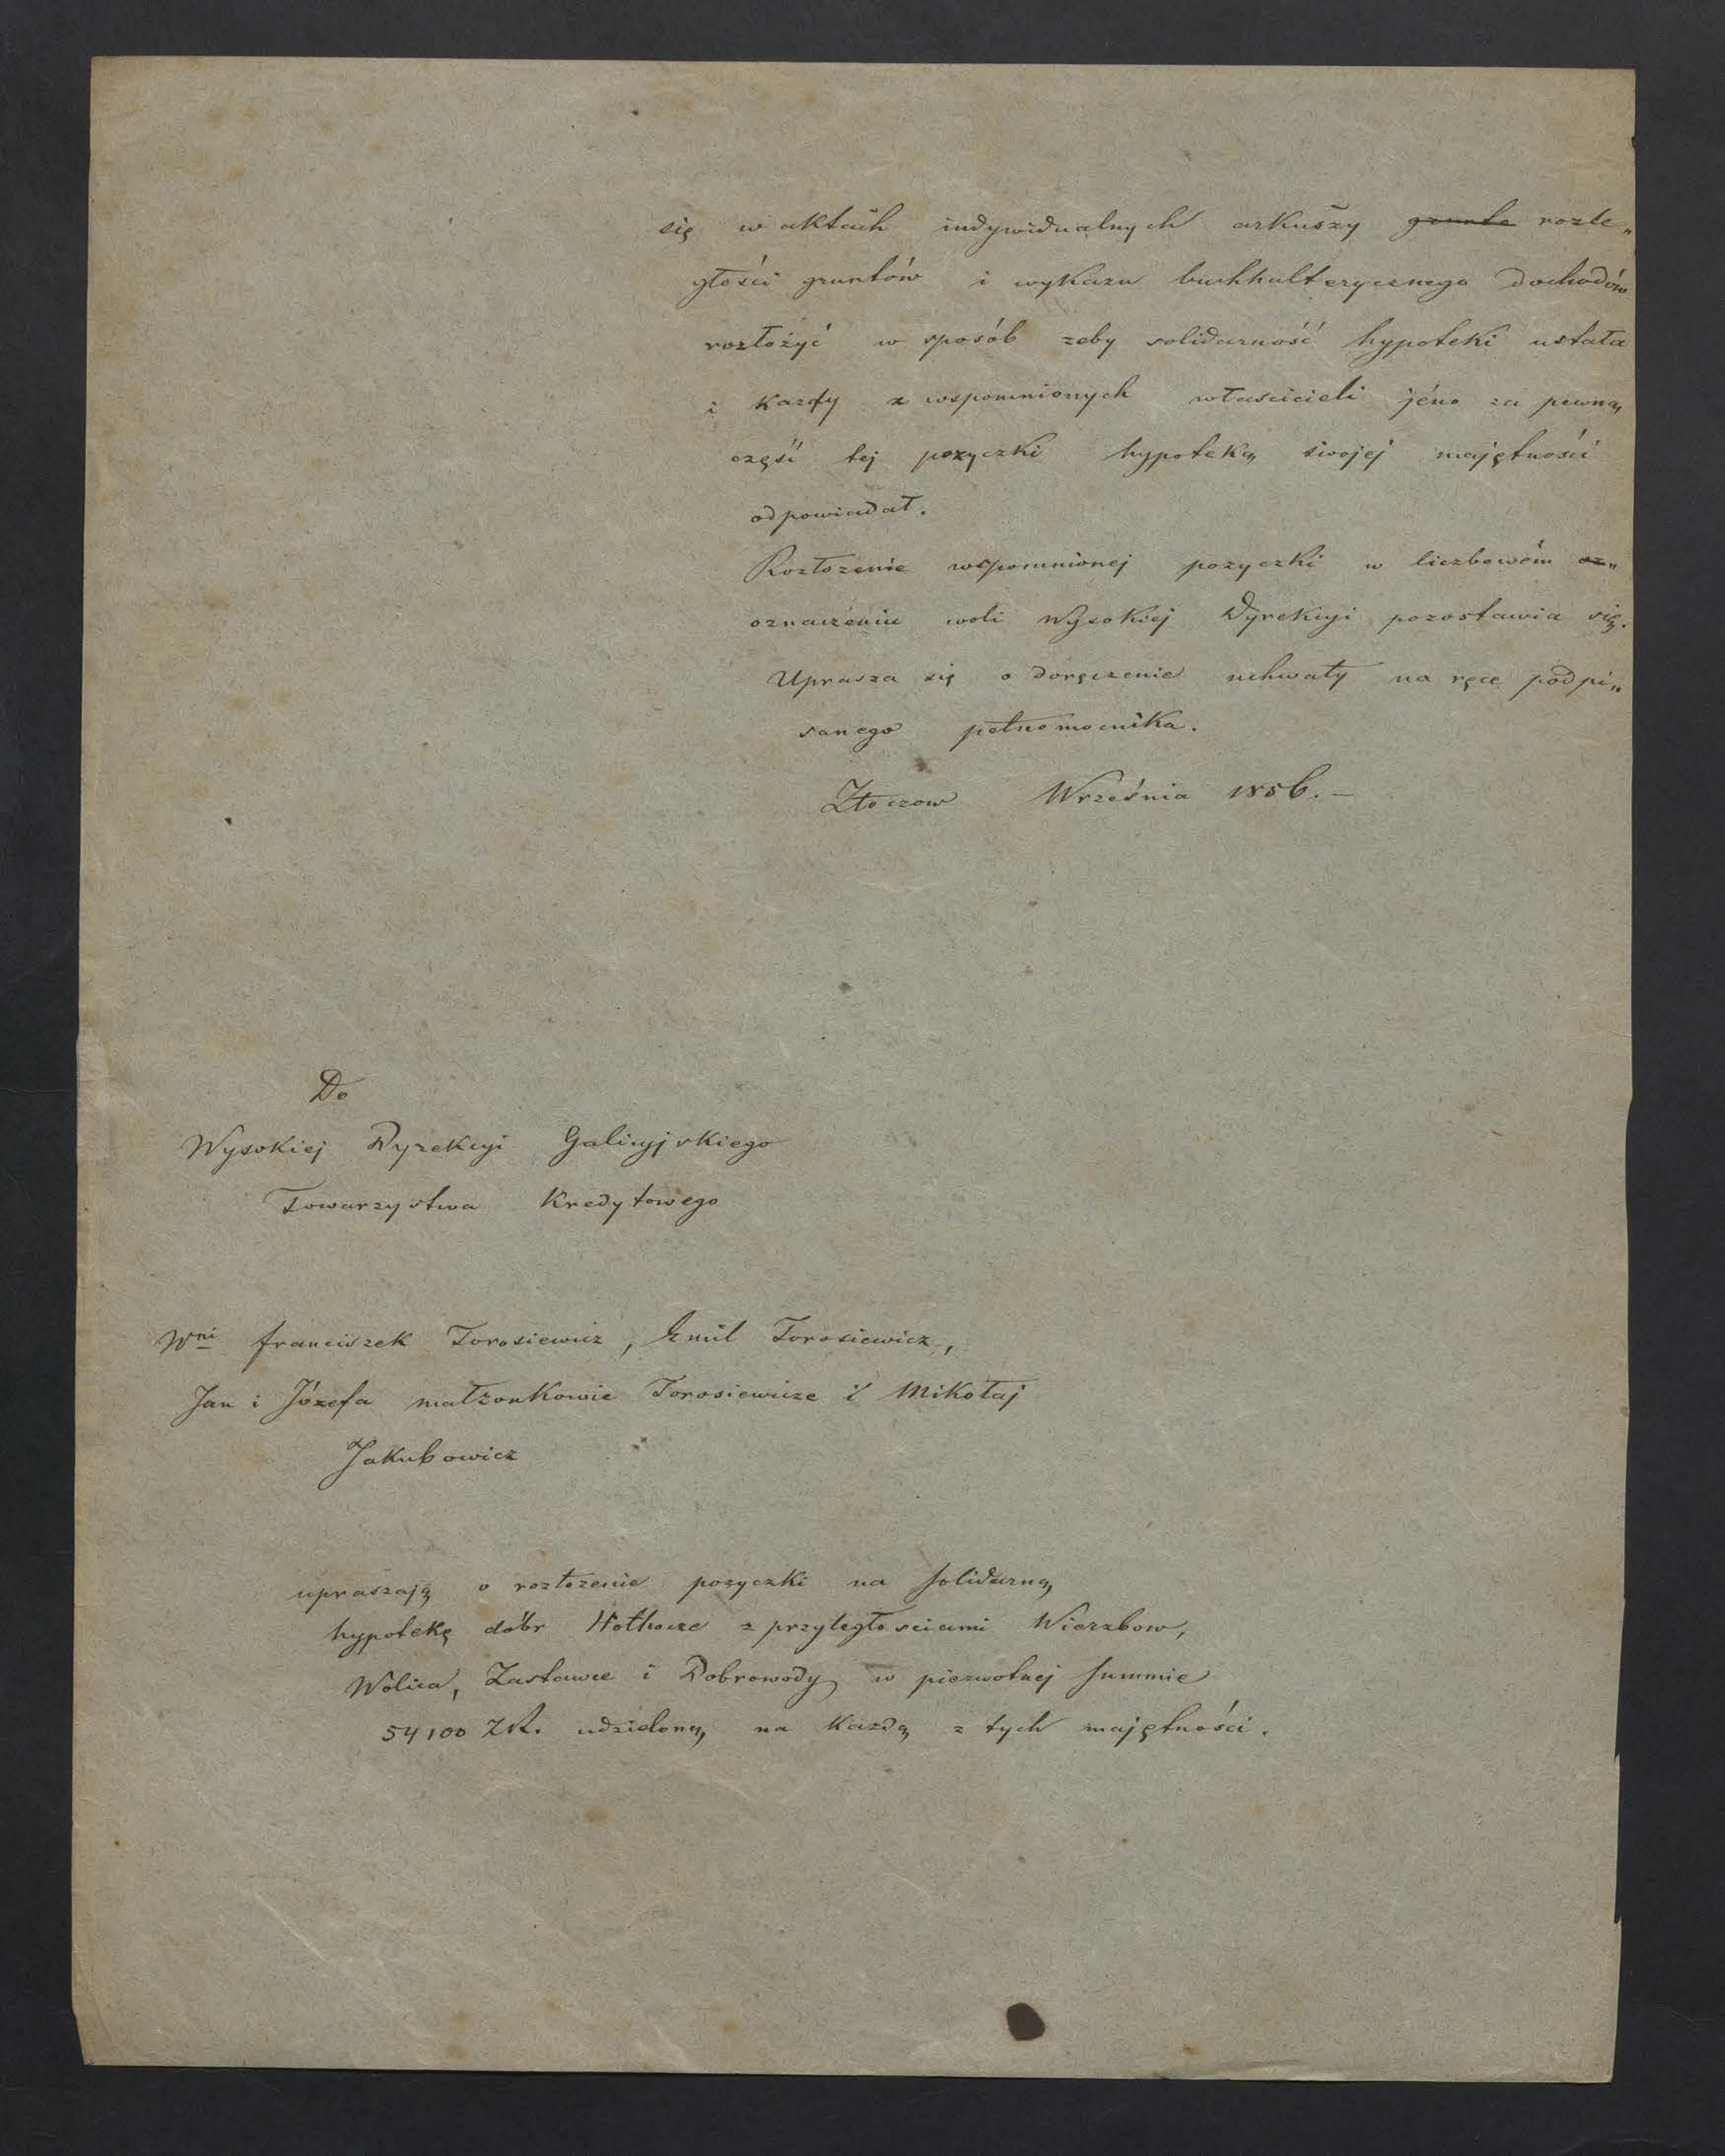 się w aktach indywidualnych arkuszy grunta rozle„
głości gruntów i wykazu buchhalterycznego dochodów
rozłożyć w sposób zeby solidarność hypoteki ustała
i kazdy z wspomnionych włascicieli jéno za pewną
część tej pozyczki hypoteką swojej majętności
odpowiadał.
Rozłozenie wspomnionej pozyczki w liczbowém oz„
oznaczéniu woli Wysokiej Dyrekcyi pozostawia się.
Uprasza się o doręczenie uchwały na ręce podpi„
sanego pełnomocnika.
Złoczow Września 1856. –
Do
Wysokiej Dyrekcyi Galicyjskiego
Towarzystwa Kredytowego
Wni franciszek Torosiewicz, Emil Torosiewicz,
Jan i Józefa małzonkowie Torosiewicze i Mikołaj
Jakubowicz
upraszają o rozłozenie pozyczki na solidarną
hypotekę dóbr Hołhocze z przyległosciami Wierzbow,
Wolica, Zastawce i Dobrowody w pierwotnej summie
54100 ZR. udzieloną na kazdą z tych majętności.